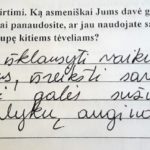 irtimi. Ką asmeniškai Jums davė g
ai panaudosite, ar jau naudojate sa
upę kitiems tėveliams?
išklausyti vaiku
išreikšti sav
galės suži
augino